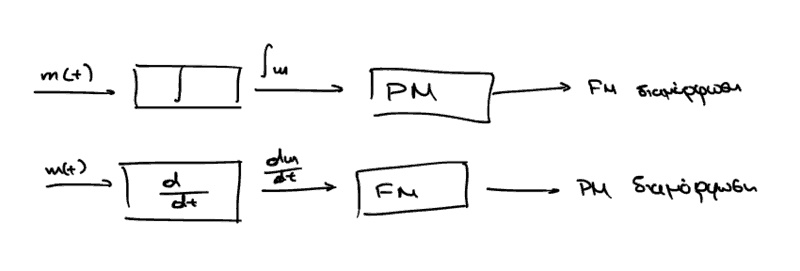 m(t) ∫ ∫m PM → FM διαμόρφωση
m(t) d/dt dm/dt FM → PM διαμόρφωση